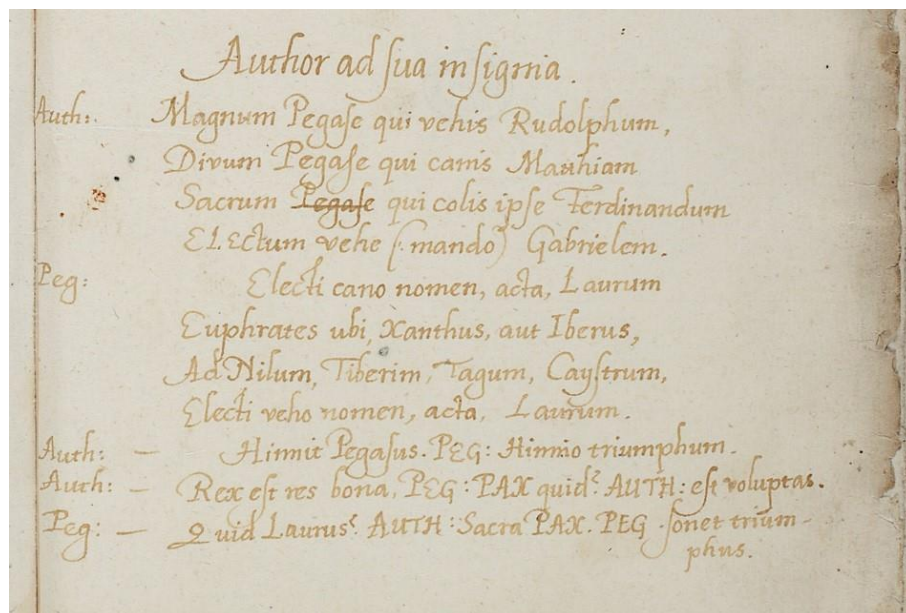 Author ad sua insignia.
Auth: Magnum Pegase qui vehis Rudolphum,
Divum Pegase qui canis Matthiam
Sacrum Pegase qui colis ipse Ferdinandum
ELEctum vehe (: mando) Gabrielem.
Peg: Electi cano nomen, acta, Laurum
Euphrates ubi, Xanthus, aut Iberus,
Ad Nilum, Tiberim, Tagum, Caystrum,
Electi veho nomen, acta, Laurum.
Auth: — Hinnit Pegasus. PEG: Hinnio triumphum.
Auth: — Rex est res bona, PEG: PAX quid? AUTH: est voluptas.
Peg: — Quid Laurus? AUTH: Sacra PAX. PEG. sonet trium-
phus.